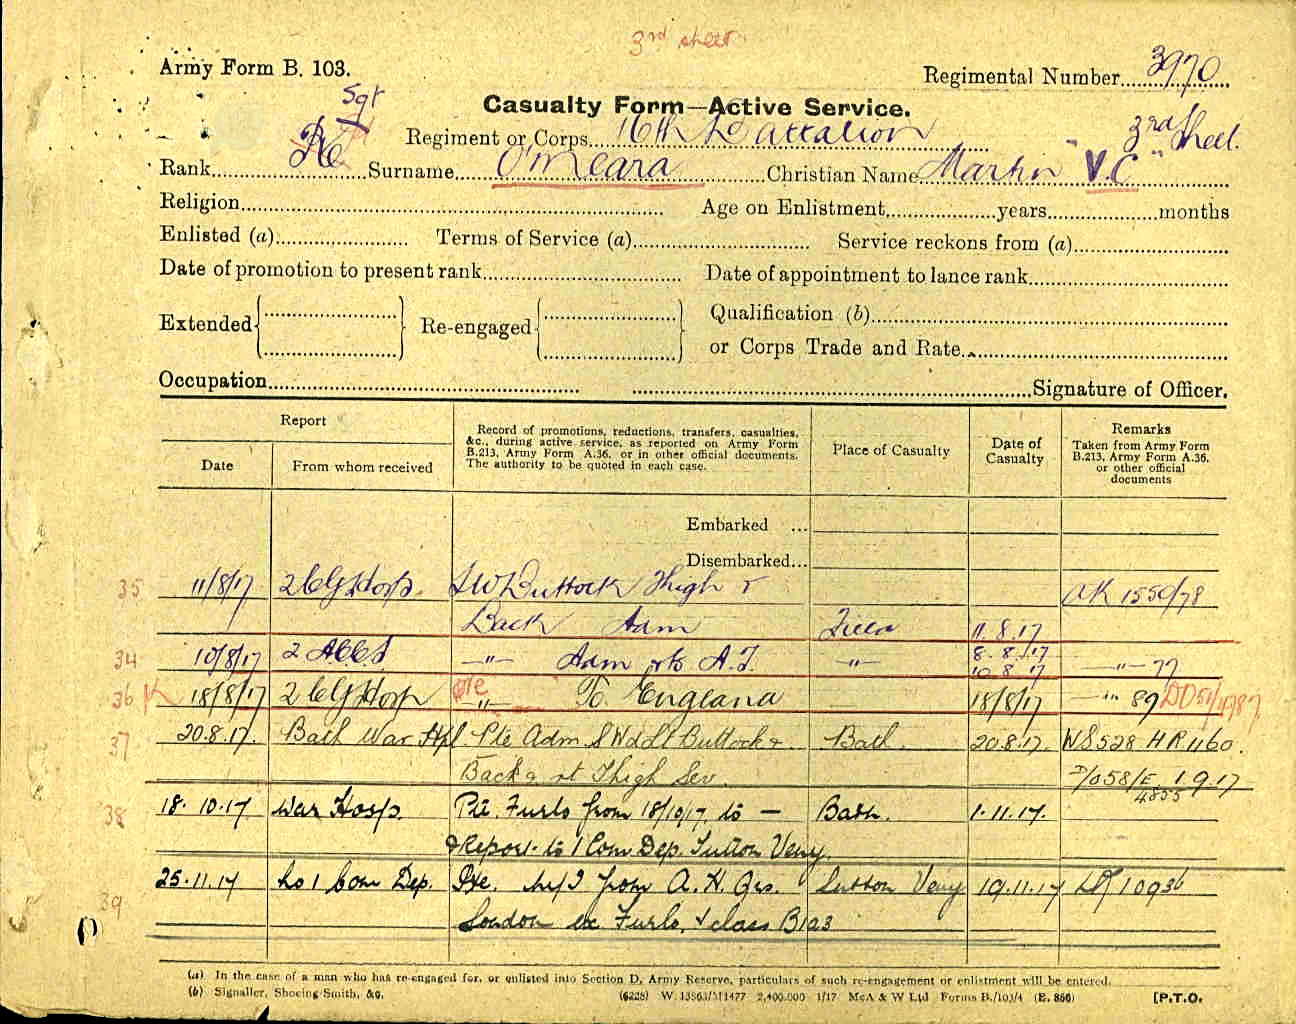 3rd sheet
Army Form B. 103.
Regimental Number 3970
Sgt
Casualty Form—Active Service.
Regiment or Corps 16th Battalion 3rd Sheet.
Rank Pte Surname O'Meara Christian Name Martin "V.C"
Religion Age on Enlistment years months
Enlisted (a) Terms of Service (a) Service reckons from (a)
Date of promotion to present rank Date of appointment to lance rank
Extended Re-engaged Qualification (b)
or Corps Trade and Rate
Occupation Signature of Officer.
Report
Date From whom received
Record of promotions, reductions, transfers, casualties,
&c., during active service, as reported on Army Form
B.213, Army Form A.36, or in other official documents.
The authority to be quoted in each case.
Place of Casualty
Date of
Casualty
Remarks
Taken from Army Form
B.213, Army Form A.36,
or other official
documents
Embarked ...
Disembarked...
35 11/8/17 Hosp. SW Buttock Thigh &
Back Adm 11.8.17
34 10/8/17 —"— Adm A.T. —"— 8.8.17
10 8 17 —"— 77
36 18/8/17 Hosp Pte —"— To England 18/8/17 " 89
37 20.8.17. Bath War Hpl. Pte Adm S Wd Lt Buttock & Bath. 20.8.17. WS528 HR 1160.
Back & rt Thigh Sev 1.9.17
4855
38 18.10.17 War Hosp. Pte. Furlo from 18/10/17 to — Bath. 1.11.17.
& Report to 1 Com Dep. Sutton Veny.
39 25.11.17 1 Com Dep. Pte. from A.H.Qrs. Sutton Veny 19.11.17 10936
London ex Furlo. & class B1a3
(a) In the case of a man who has re-engaged for, or enlisted into Section D, Army Reserve, particulars of such re-engagement or enlistment will be entered.
(b) Signaller, Shoeing Smith, &c. (6228) W. 13863/M1477 2,400,000 1/17 McA & W Ltd Forms B./103/4 (E. 856) [P.T.O.